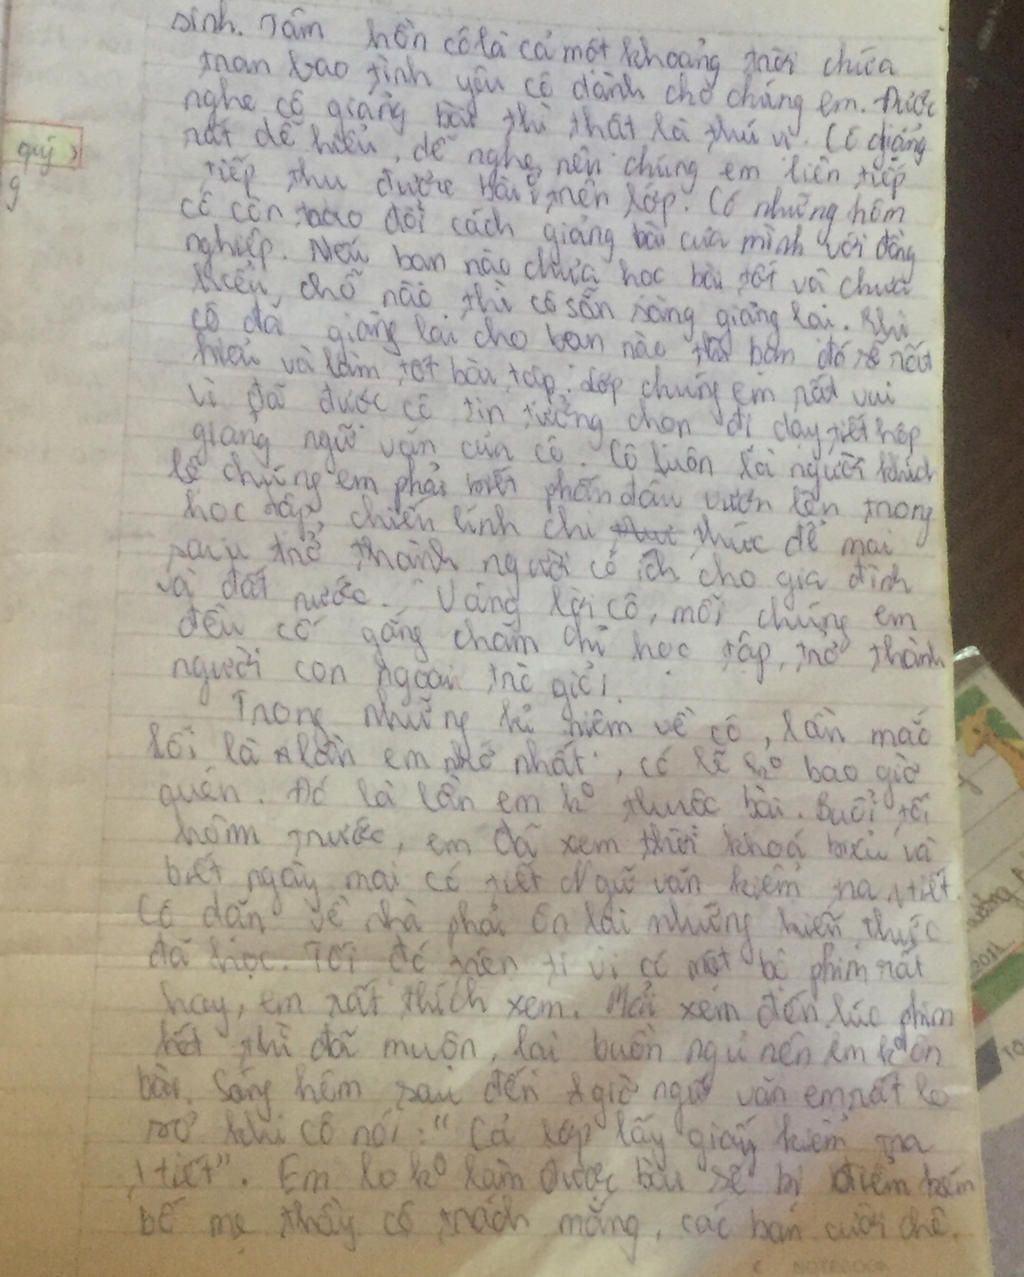 sinh. Tâm hồn cô là cả một khoảng trời chứa
tran bao tình yêu cô dành cho chúng em. Được
nghe cô giảng bài thì thật là thú vị. Cô giảng
rất dễ hiểu, dễ nghe nên chúng em liên tiếp
tiếp thu được bài trên lớp. Có những hôm
cô còn trao đổi cách giảng bài của mình với đồng
nghiệp. Nếu bạn nào chưa học bài tốt và chưa
hiểu chỗ nào thì cô sẵn sàng giảng lại. Khi
cô đã giảng lại cho bạn nào thì bạn đó sẽ rất
hiểu và làm tốt bài tập. Lớp chúng em rất vui
vì đã được cô tin tưởng chọn đi dạy tiết hộp
giảng ngữ văn của cô. Cô luôn là người khích
lệ chúng em phải biết phấn đấu vươn lên trong
học tập, chiến lĩnh chi thức để mai
sau trở thành người có ích cho gia đình
và đất nước. Vâng lời cô, mỗi chúng em
đều cố gắng chăm chỉ học tập, trở thành
người con ngoan trò giỏi.
Trong những kỉ niệm về cô, lần mắc
lỗi là lần em nhớ nhất, có lẽ ko bao giờ
quên. Đó là lần em ko thuộc bài. Buổi tối
hôm trước, em đã xem thời khoá biểu và
biết ngày mai có tiết Ngữ văn kiểm tra 1 tiết.
Cô dặn về nhà phải ôn lại những kiến thức
đã học. Tối đó trên ti vi có một bộ phim rất
hay, em rất thích xem. Mải xem đến lúc phim
hết thì đã muộn, lại buồn ngủ nên em ko ôn
bài. Sáng hôm sau đến giờ ngữ văn em rất lo
sợ khi cô nói: "Cả lớp lấy giấy kiểm tra
1 tiết". Em lo ko làm được bài sẽ bị điểm kém
bố mẹ thầy cô trách mắng, các bạn cười chê.
quý
g